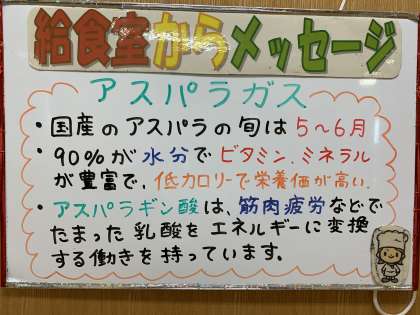 給食室からメッセージ
アスパラガス
・国産のアスパラの旬は5～6月
・90%が水分でビタミン、ミネラル
が豊富で、低カロリーで栄養価が高い。
・アスパラギン酸は、筋肉疲労などで
たまった乳酸をエネルギーに変換
する働きを持っています。